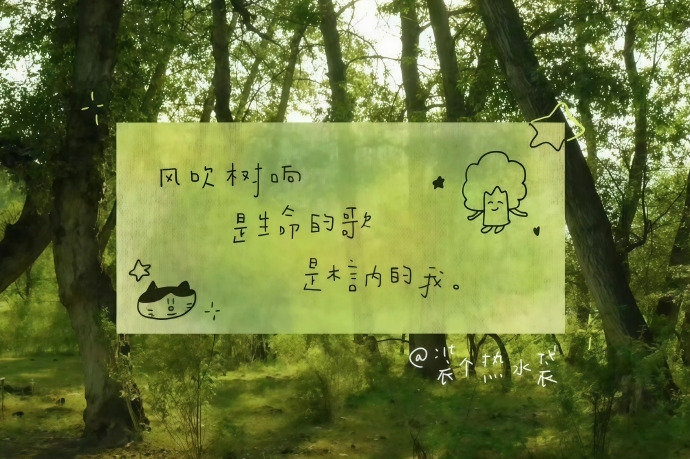 风吹树响
是生命的歌
是木讷的我。
@装个热水袋